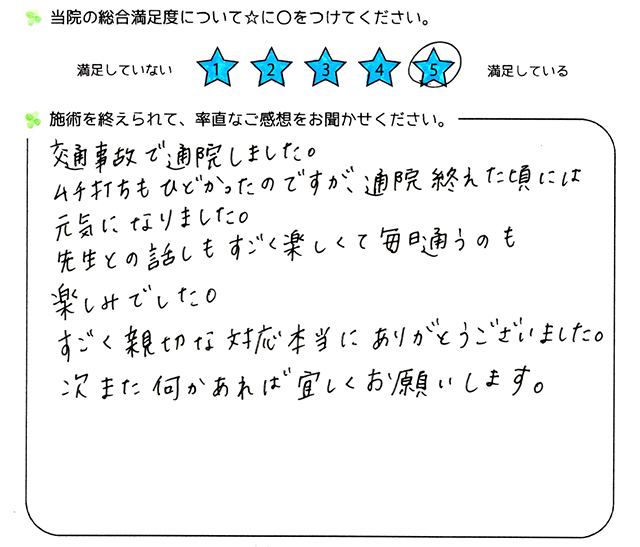 当院の総合満足度について☆に○をつけてください。
満足していない 1 2 3 4 5 満足している
施術を終えられて、率直なご感想をお聞かせください。
交通事故で通院しました。
ムチ打ちもひどかったのですが、通院終れた頃には
元気になりました。
先生との話しもすごく楽しくて毎日通うのも
楽しみでした。
すごく親切な対応本当にありがとうございました。
次また何かあれば宜しくお願いします。